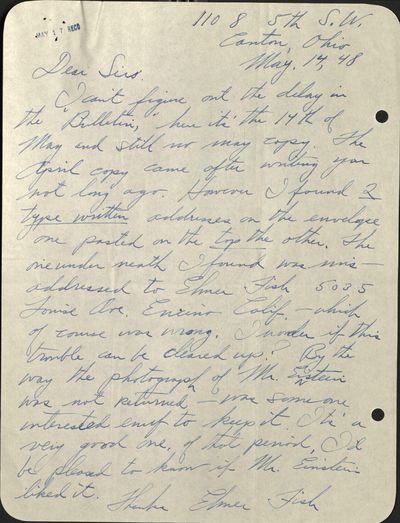 MAY 17 RECD
1108 5th S.W.
Canton, Ohio
May. 14, 48
Dear Sirs.
I can't figure out the delay in
the "Bulletin," here it's the 14th of
May and still no may copy. The
April copy came after writing you
not long ago. However I found 2
type written addresses on the envelope
one pasted on the top the other. The
one under neath I found was mis-
addressed to Elmer Fish 5035
Louise Ave. Encino Calif. - which
of course was wrong. I wonder if this
trouble can be cleared up? By the
way the photograph of Mr. Einstein
was not returned - was some one
interested enuf to keep it. It's a
very good one, of that period, I'd
be pleased to know if Mr. Einstein
liked it.
Thanks Elmer Fish